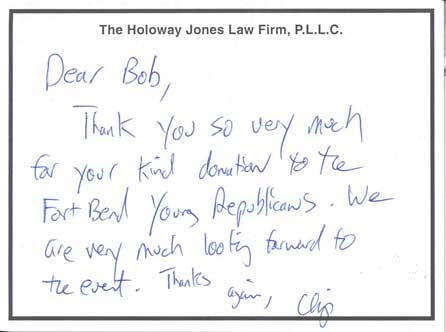 The Holoway Jones Law Firm, P.L.L.C.
Dear Bob,
Thank you so very much
for your kind donation to the
Fort Bend Young Republicans. We
are very much looking forward to
the event. Thanks
again,
Chip